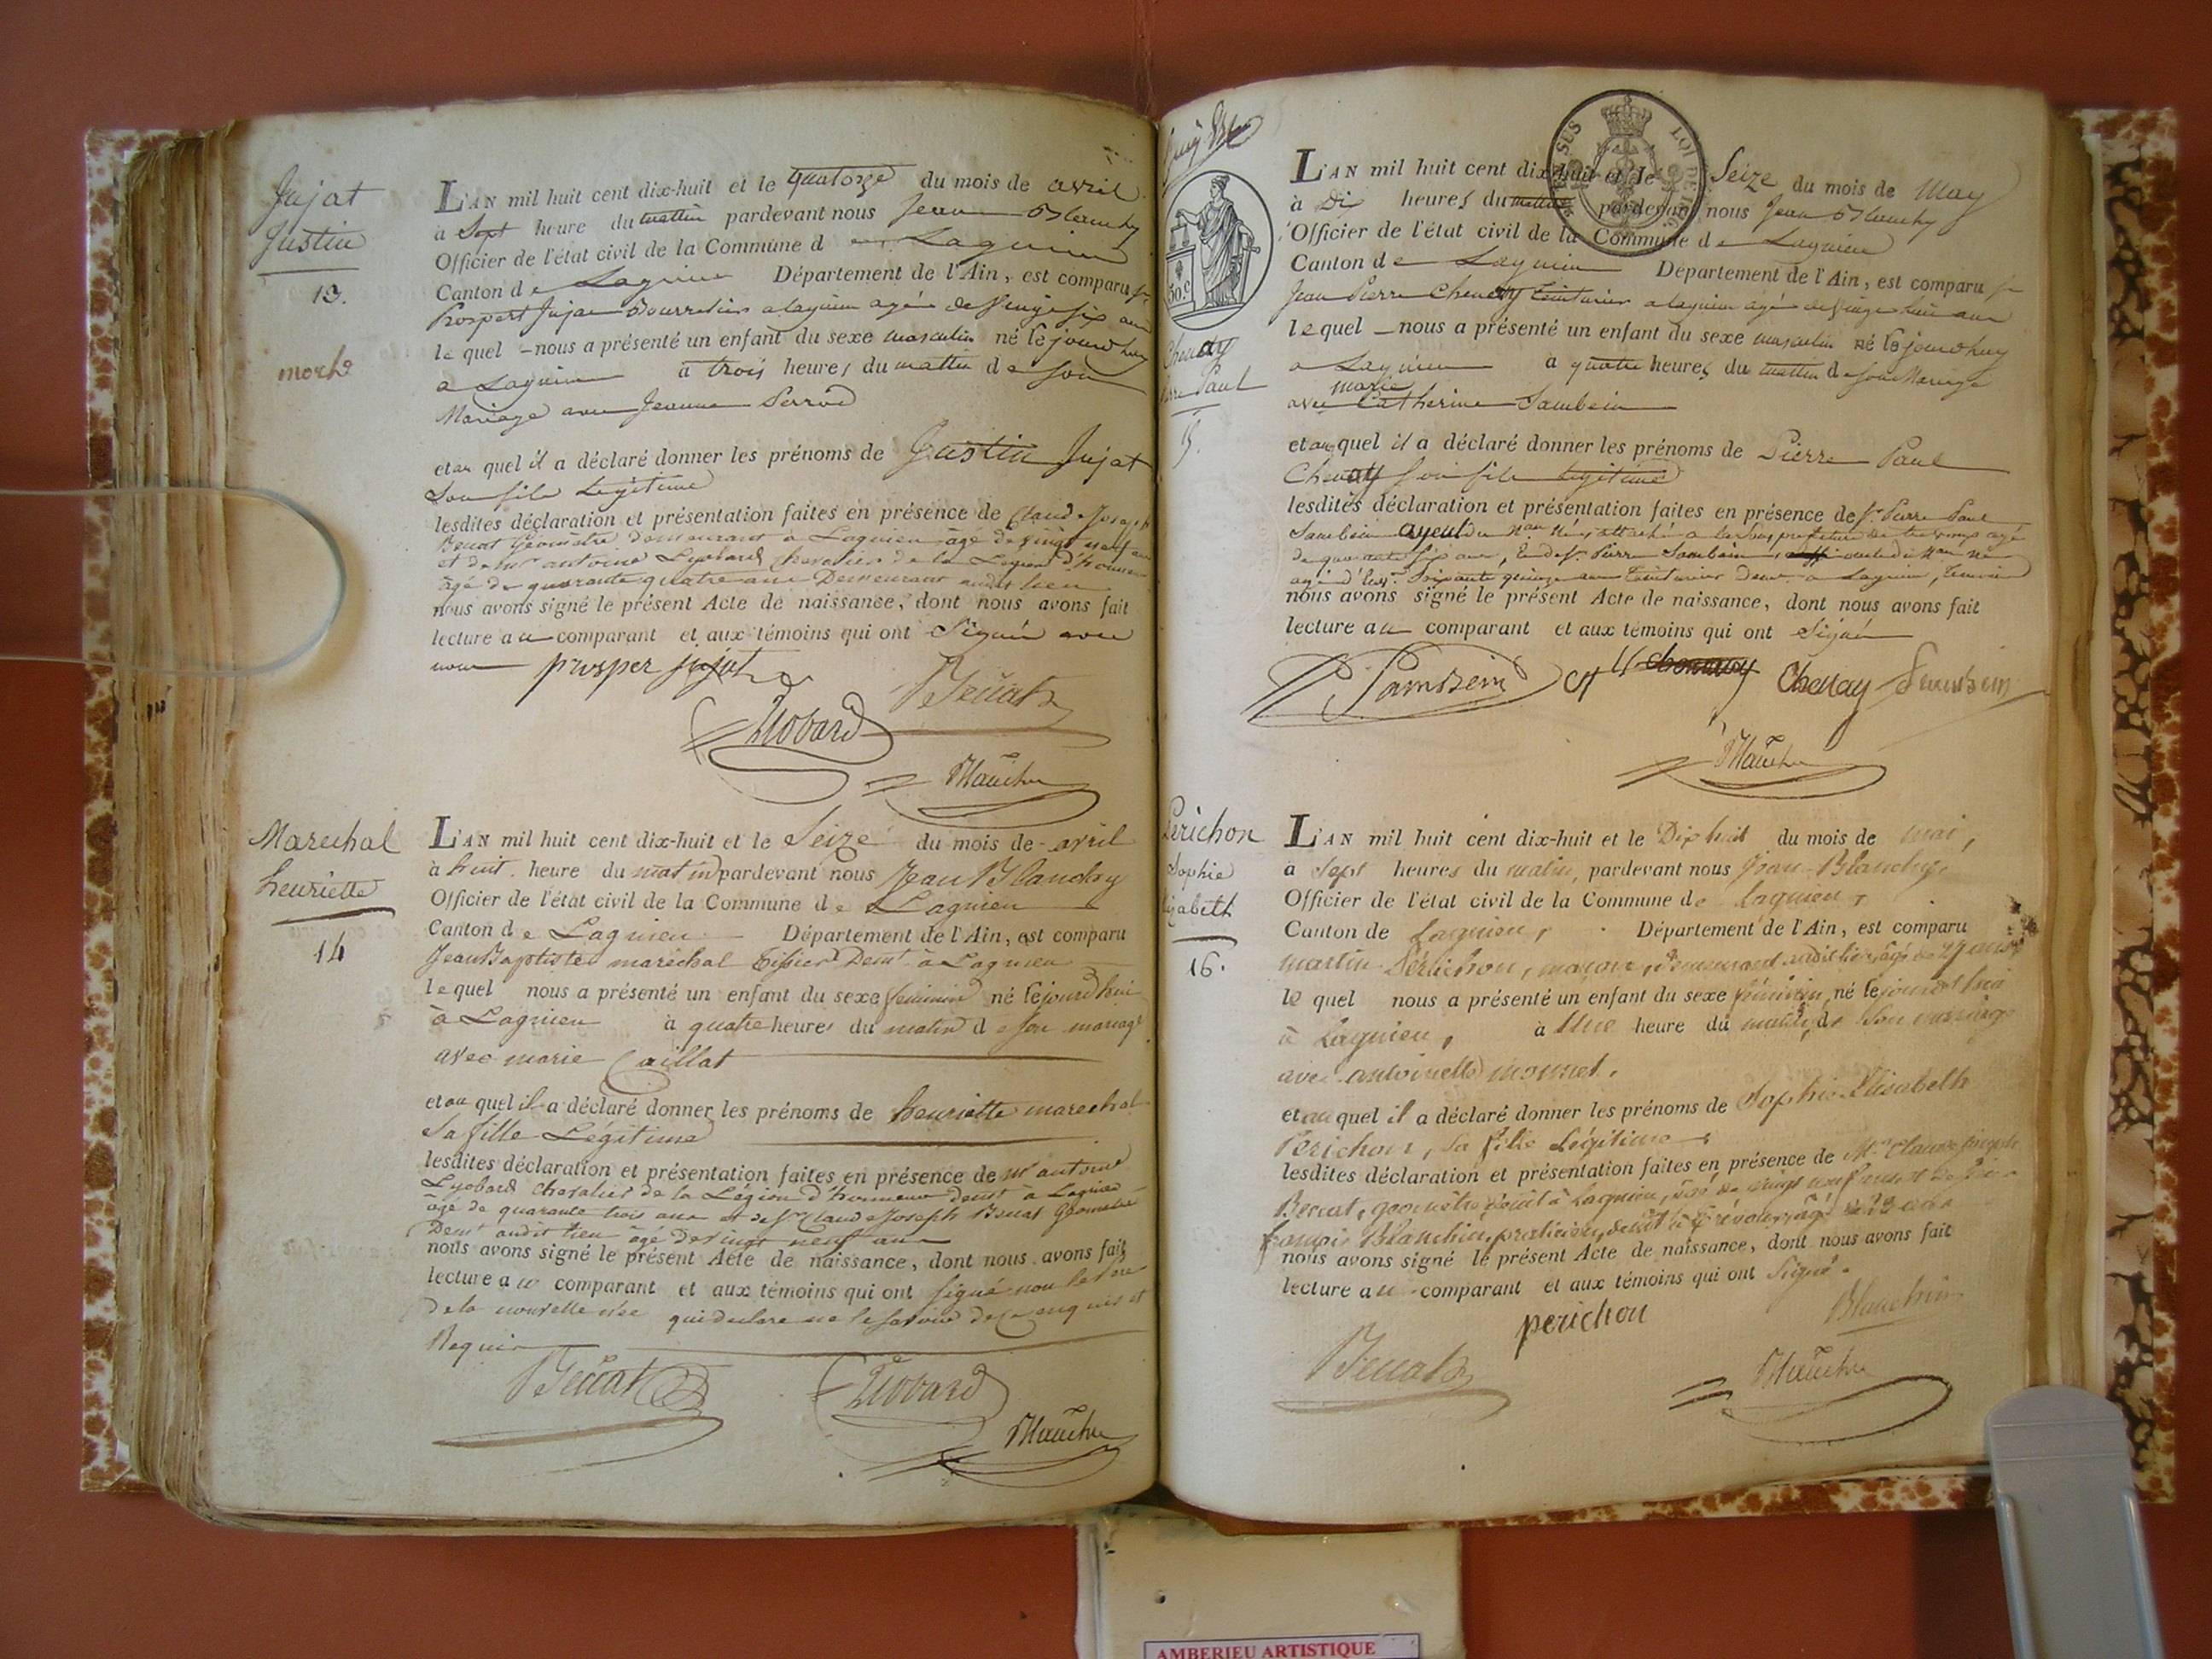 Jujat
Justin
13.
morte
L'AN mil huit cent dix-huit et le quatorze du mois de avril
à Sept heure du mattin pardevant nous Jean Blanchy
Officier de l'état civil de la Commune de Lagnieu
Canton de Lagnieu Département de l'Ain, est comparu Sr
Prospert Jujat Bourrelier a lagnieu agé de vingt six ans
lequel nous a présenté un enfant du sexe masculin né le jourdhuy
a Lagnieu à trois heures du mattin de son
Mariage avec Jeanne Perrod
et au quel il a déclaré donner les prénoms de Justin Jujat
Son fils Legitime
lesdites déclaration et présentation faites en présence de Claude Joseph
Beuat Géomètre demeurant a Lagnieu âgé de vingt neuf ans
et de Mr antoine Lyobard chevalier de la Legion d'honneur
âgé de quarante quatre ans Demeurant audit lieu
nous avons signé le présent Acte de naissance, dont nous avons fait
lecture au comparant et aux témoins qui ont Signé avec
nous prosper jujat
Beuat
Liobard
Blanchy
Marechal
henriette
14
L'AN mil huit cent dix-huit et le Seize du mois de avril
à huit heure du matin pardevant nous Jean Blanchy
Officier de l'état civil de la Commune de Lagnieu
Canton de Lagnieu Département de l'Ain, est comparu
Jean Baptiste maréchal tissier Demt à Lagnieu
lequel nous a présenté un enfant du sexe feminin né le jourdhui
à Lagnieu à quatre heures du matin de son mariage
avec marie Caillat
et au quel il a déclaré donner les prénoms de henriette marechal
Sa fille Légitime
lesdites déclaration et présentation faites en présence de Mr antoine
Lyobard chevalier de la Légion d'honneur demt à Lagnieu
âgé de quarante trois ans et de Sr Claude Joseph Beuat Géomètre
Demt audit lieu âgé de vingt neuf ans
nous avons signé le présent Acte de naissance, dont nous avons fait
lecture au comparant et aux témoins qui ont signé non le père
de la nouvelle née qui declare ne le savoir de ce enquis et
Requis
Beuat
Liobard
Blanchy
SUS LOI DE 1816
50 c
Chenay
Pierre Paul
15.
L'AN mil huit cent dix-huit et le Seize du mois de May
à Dix heures du mattin pardevant nous Jean Blanchy
Officier de l'état civil de la Commune de Lagnieu
Canton de Lagnieu Département de l'Ain, est comparu Sr
Jean Pierre Chenay teinturier a lagnieu agé de vingt huit ans
lequel nous a présenté un enfant du sexe masculin né le jourdhuy
a Lagnieu à quatre heures du mattin de son Mariage
marie
avec Catherine Sambein
et au quel il a déclaré donner les prénoms de Pierre Paul
Chenay son fils legitime
lesdites déclaration et présentation faites en présence de Sr Pierre Paul
Sambein ayeul du nau né, attaché a la Sous prefecture de trevoux agé
de quarante six ans, & de Sr Pierre Sambein, oncle du nau né
agé d'environ Soixante quinze ans teinturier demt a Lagnieu, temoins
nous avons signé le présent Acte de naissance, dont nous avons fait
lecture au comparant et aux témoins qui ont Signé
P. Sambein Chenay Sambein
Blanchy
Périchon
Sophie
Elisabeth
16.
L'AN mil huit cent dix-huit et le Dix huit du mois de mai,
à Sept heures du matin, pardevant nous Jean Blanchy,
Officier de l'état civil de la Commune de Lagnieu,
Canton de Lagnieu, Département de l'Ain, est comparu
martin Périchon, maçon, demeurant audit lieu, âgé de 29 ans,
lequel nous a présenté un enfant du sexe féminin, né le jourd'hui
à Lagnieu, à Une heure du matin, de Son mariage
avec antoinette monnet.
et au quel il a déclaré donner les prénoms de Sophie Elisabeth
Périchon, Sa fille Légitime
lesdites déclaration et présentation faites en présence de Mr Claude Joseph
Beuat, géomètre, demt à Lagnieu, âgé de vingt neuf ans et de Sieur
françois Blanchin, praticien, demt à
nous avons signé le présent Acte de naissance, dont nous avons fait
lecture au comparant et aux témoins qui ont Signé.
perichon
Blanchin
Beuat
Blanchy
AMBERIEU ARTISTIQUE